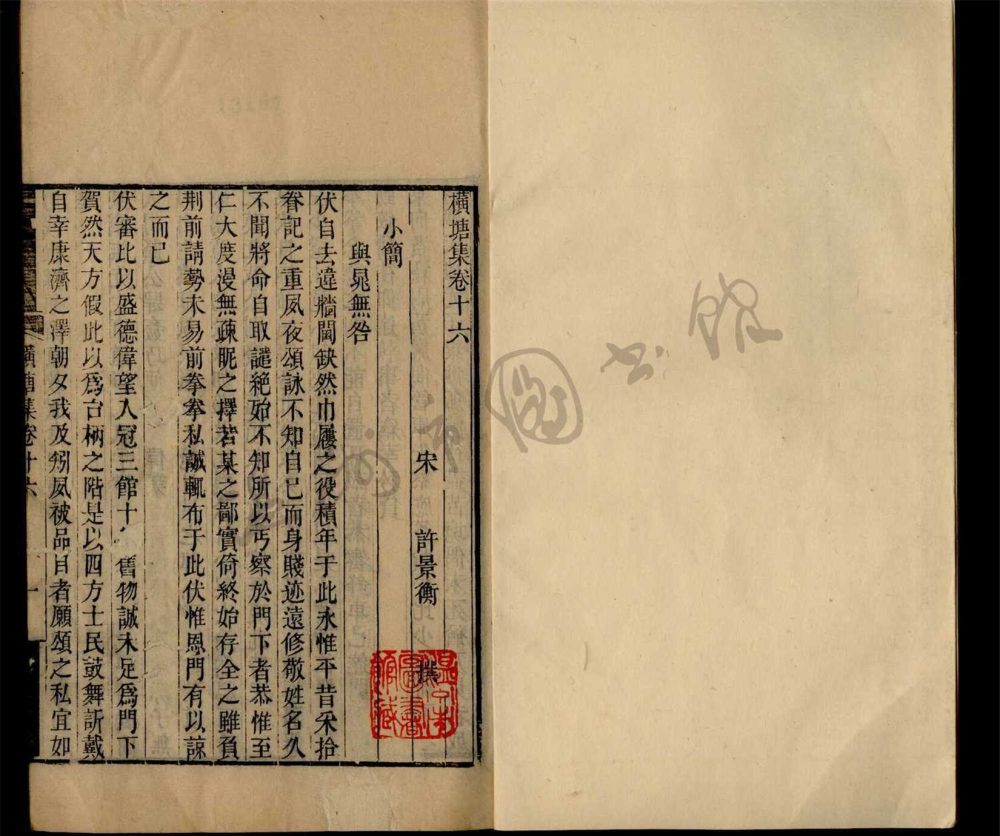 橫塘集卷十六
宋 許景衡 撰
小簡
與晁無咎
伏自去違牆閫缺然巾屨之役積年于此永惟平昔采拾
眷記之重夙夜頌詠不知自已而身賤迹遠修敬姓名久
不聞將命自取譴絶始不知所以丐察於門下者恭惟至
仁大度漫無疎昵之擇若某之鄙實倚終始存全之雖負
荆前請勢未易前拳拳私誠輒布于此伏惟恩門有以諒
之而已
伏審比以盛德偉望入冠三館十 舊物誠未足爲門下
賀然天方假此以爲台柄之階是以四方士民鼓舞訢戴
自幸康濟之澤朝夕我及矧夙被品目者願頌之私宜如
橫塘集卷十六
一
圖書館